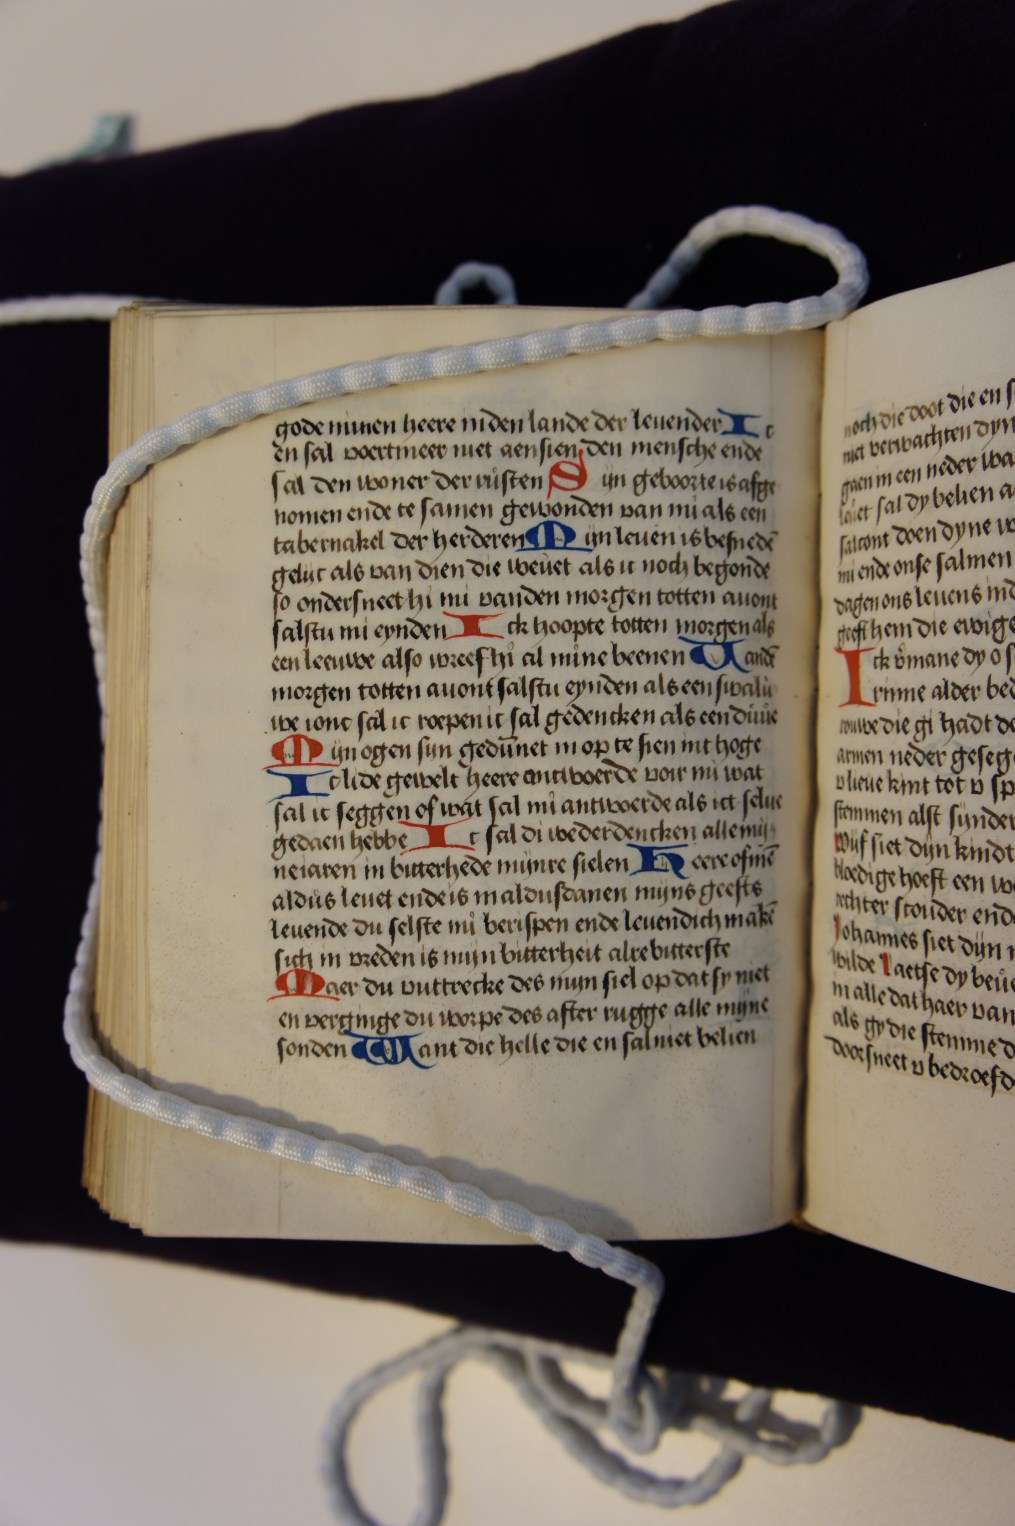 gode minen heere in den lande der leuender Ic
en sal voertmeer niet aensien den mensche ende
sal den woner der rüsten Sijn geboorte is afge
nomen ende te samen gewonden van mi als een
tabernakel der herderen Mijn leuen is besnedē
gelijc als van dien die weuet als ic noch begonde
so ondersneet hi mi vanden morgen totten auont
salstu mi eynden Ick hoopte totten morgen als
een leeuwe also wreef hi al mine beenen Vandē
morgen totten auont salstu eynden als een swalu
we ionc sal ic roepen ic sal gedencken als een duue
Mijn ogen sijn gedunnet in op te sien int hoge
Ic lide gewelt heere antwoerde voir mi wat
sal ic seggen of wat sal mi antwoerde als ict selue
gedaen hebbe Ic sal di wederdencken alle mij
ne iaren in bitterhede mijnre sielen Heere of mē
aldus leuet ende is in aldusdanen mijns geests
leuende du selste mi berispen ende leuendich makē
sich in vreden is mijn bitterheit alre bitterste
Maer du vuttrecke des mijn siel op dat sy niet
en verginge du worpe des after rugge alle mijne
sonden Want die helle die en sal niet belien
noch die doot die en
niet verwachten dyn
gaen in een neder
sal dy belien
doen dyne
mi ende onse salmen
dagen ons leuens
geest hem die ewige
Ick vmane dy o
rinne alder
die gi hadt
armen neder geseg
v lieue kint tot v
stemmen alst sunder
wijf siet dijn kindt
bloedige hoeft een
rechter scouder ende
Iohannes siet dijn
wilde Laetse dy
in alle dat haer van
als gy die stemme
doorsneet v bedroefd